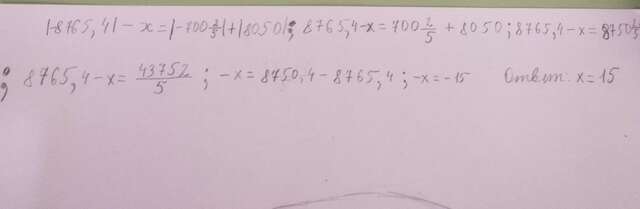 |-8765,4| - x = |-700 2/5| + |8050|; 8765,4-x = 700 2/5 + 8050; 8765,4-x = 8750 2/5
; 8765,4-x = 43752/5 ; -x = 8750,4 - 8765,4 ; -x = -15 Ответ: x=15